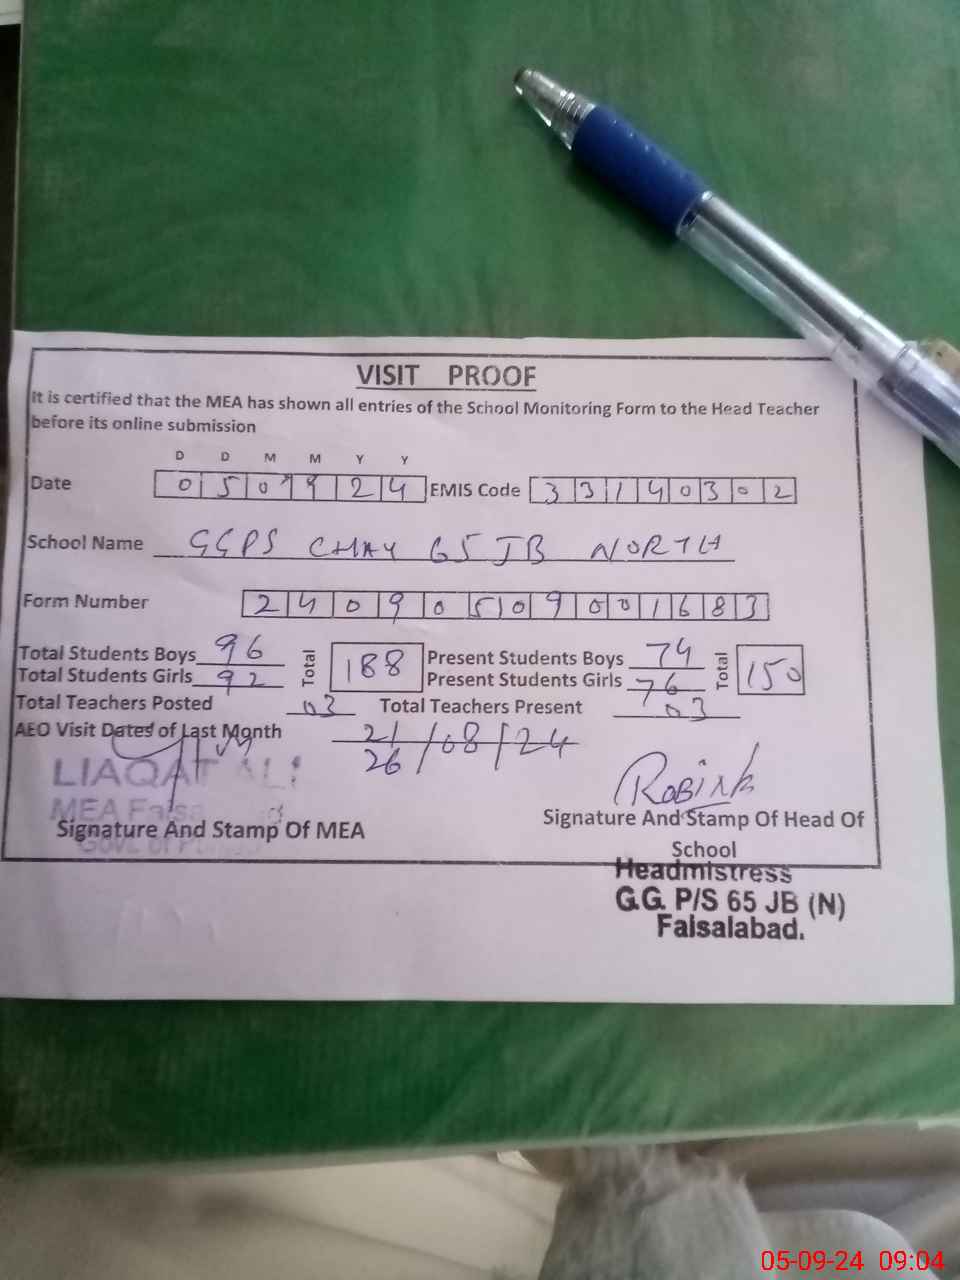 VISIT PROOF
It is certified that the MEA has shown all entries of the School Monitoring Form to the Head Teacher
before its online submission
D D M M Y Y
Date 050924 EMIS Code 33140302
School Name GGPS CHAK 65 JB NORTH
Form Number 24090509001683
Total Students Boys 96 Total 188 Present Students Boys 74 Total 150
Total Students Girls 92 Present Students Girls 76
Total Teachers Posted 03 Total Teachers Present 03
AEO Visit Dates of Last Month 21/08/24
26
LIAQAT ALI
MEA
Signature And Stamp Of MEA
Govt. of
Signature And Stamp Of Head Of
School
Headmistress
G.G. P/S 65 JB (N)
Faisalabad.
05-09-24 09:04